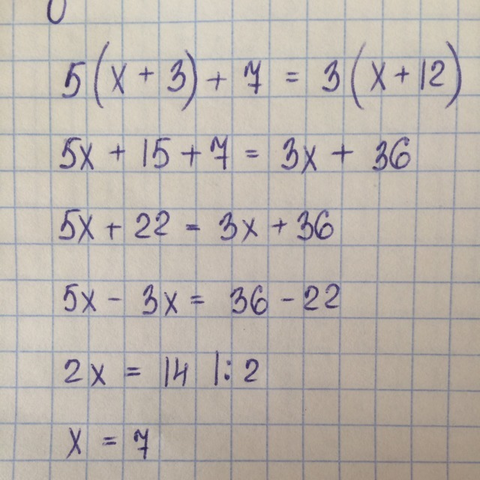 5(x + 3) + 7 = 3(x + 12)
5x + 15 + 7 = 3x + 36
5x + 22 = 3x + 36
5x - 3x = 36 - 22
2x = 14 |: 2
x = 7